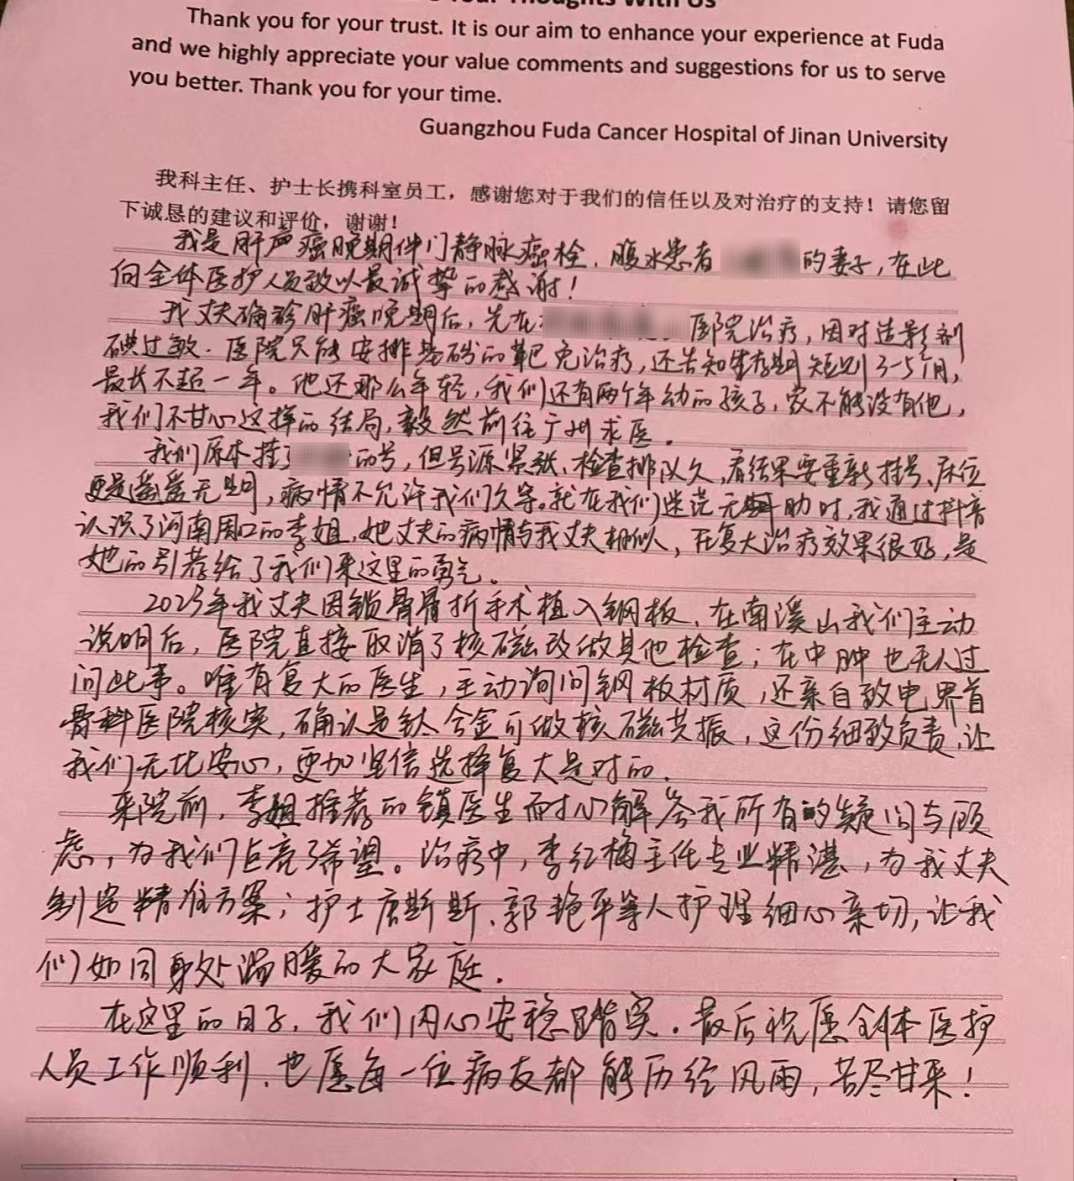 Your Thoughts With Us
Thank you for your trust. It is our aim to enhance your experience at Fuda
and we highly appreciate your value comments and suggestions for us to serve
you better. Thank you for your time.
Guangzhou Fuda Cancer Hospital of Jinan University
我科主任、护士长携科室员工，感谢您对于我们的信任以及对治疗的支持！请您留
下诚恳的建议和评价，谢谢！
我是肝癌晚期伴门静脉癌栓、腹水患者 的妻子，在此
向全体医护人员致以最诚挚的感谢！
我丈夫确诊肝癌晚期后，先在 医院治疗，因对造影剂
碘过敏．医院只能安排基础的靶免治疗，还告知生存期短则3-5个月，
最长不超一年。他还那么年轻，我们还有两个年幼的孩子，家不能没有他，
我们不甘心这样的结局，毅然前往广州求医。
我们原本挂了 的号，但号源紧张、检查排队久，看结果要重新挂号、床位
更是遥遥无期，病情不允许我们久等。就在我们迷茫无助时，我通过抖音
认识了河南周口的李姐，她丈夫的病情与我丈夫相似，在复大治疗效果很好，是
她的引荐给了我们来这里的勇气。
2025年我丈夫因锁骨骨折手术植入钢板，在南溪山我们主动
说明后，医院直接取消了核磁改做其他检查；在中肿也无人过
问此事。唯有复大的医生，主动询问钢板材质，还亲自致电界首
骨科医院核实，确认是钛合金可做核磁共振，这份细致负责，让
我们无比安心，更加坚信选择复大是对的．
来院前，李姐推荐的镇医生耐心解答我所有的疑问与顾
虑，为我们点亮了希望。治疗中，李红梅主任专业精湛，为我丈夫
制定精准方案；护士唐斯斯、郭艳平等人护理细心亲切，让我
们如同身处温暖的大家庭．
在这里的日子，我们内心安稳踏实．最后祝愿全体医护
人员工作顺利，也愿每一位病友都能历经风雨，苦尽甘来！